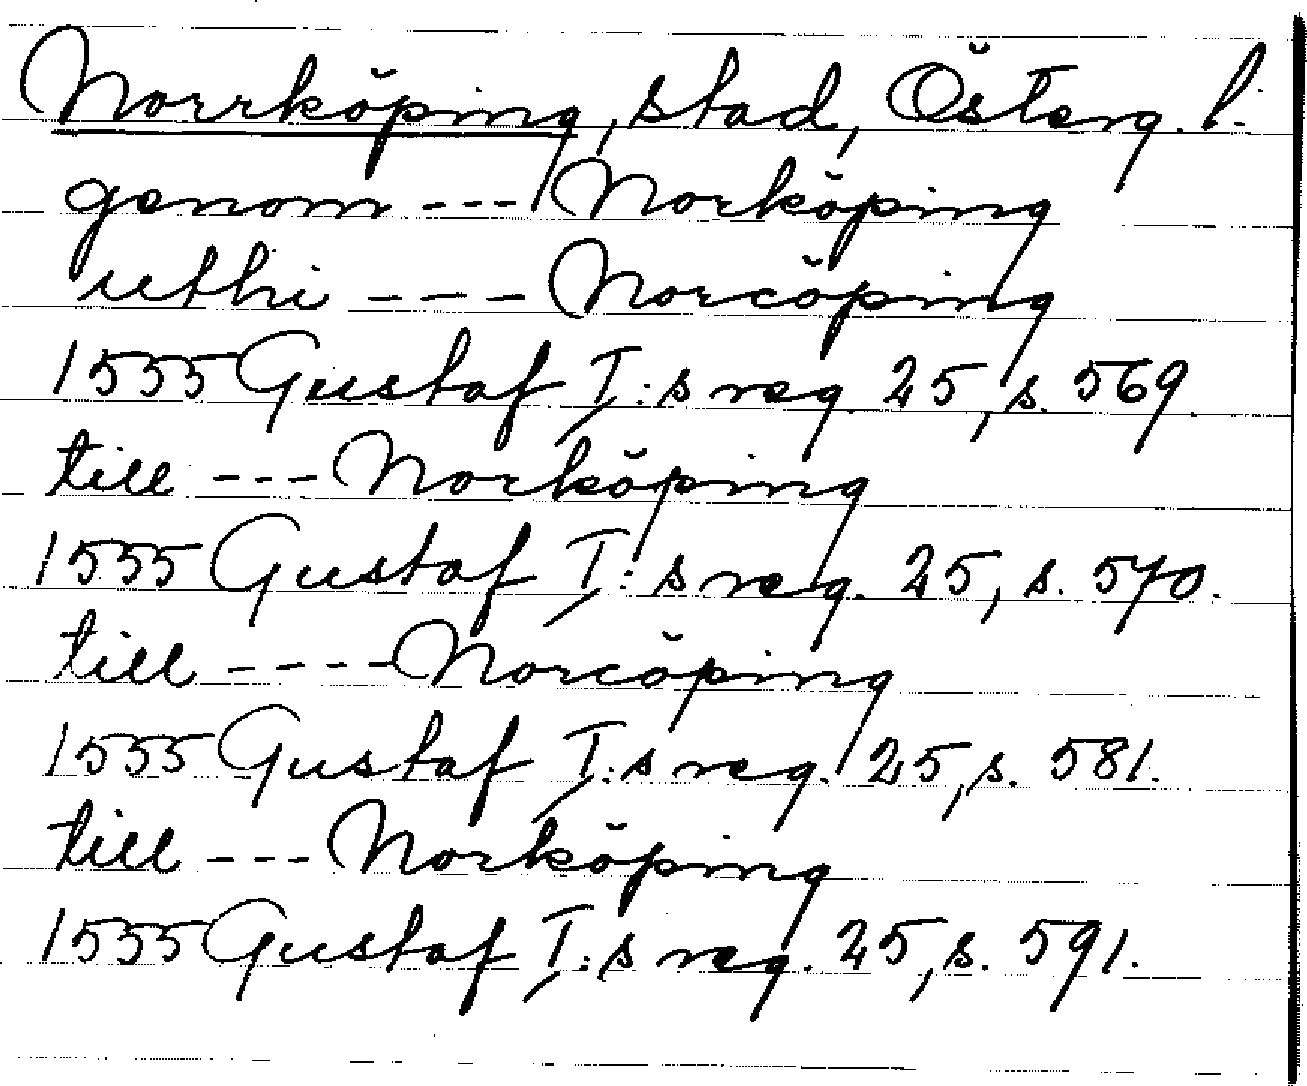 Norrköping, stad, Österg. l.
genom --- Norköping
uthi --- Norcöping
1555 Gustaf I:s reg. 25, s. 569.
till --- Norköping
1555 Gustaf I:s reg. 25, s. 570.
till ---- Norcöping
1555 Gustaf I:s reg. 25, s. 581.
till --- Norköping
1555 Gustaf I:s reg. 25, s. 591.